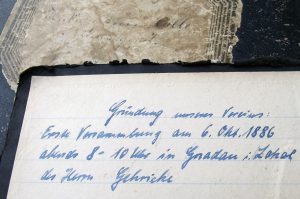 Gründung unseres Vereins:
Erste Versammlung am 6. Okt. 1886
abends 8-10 Uhr in Gnadau i. Lokal
des Herrn Gehricke